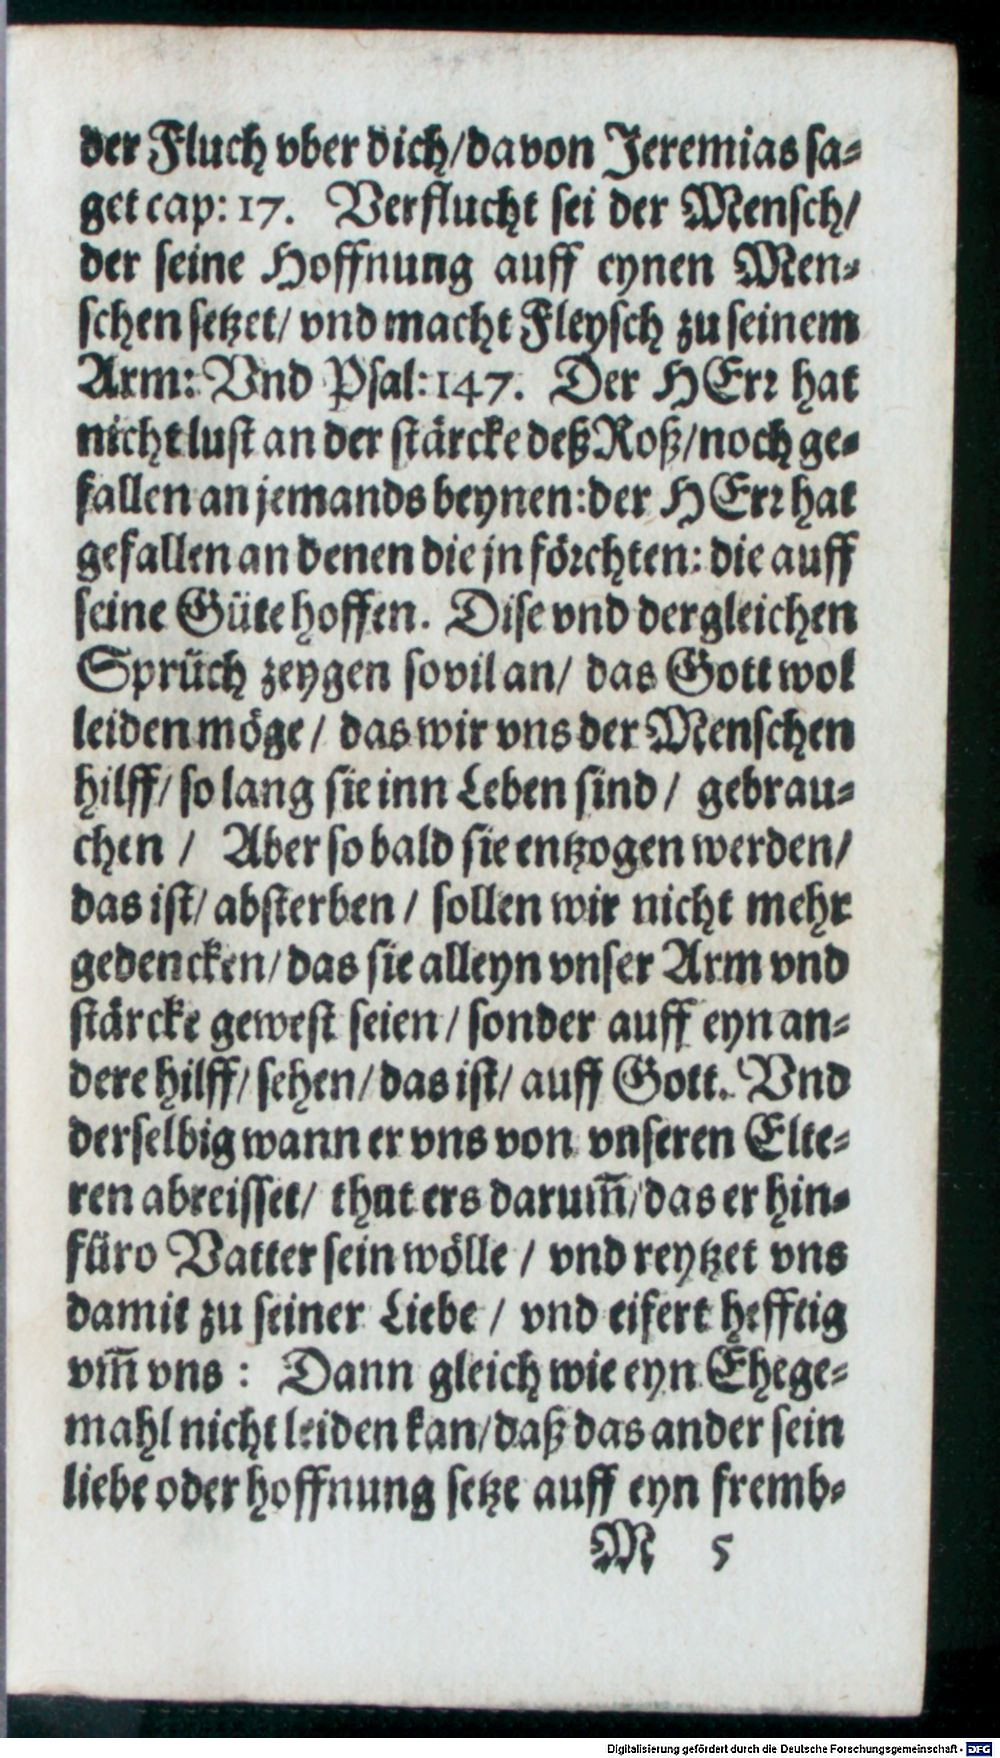 der Fluch vber dich/davon Jeremias sa⸗
get cap: 17. Verflucht sei der Mensch/
der seine Hoffnung auff eynen Men⸗
schen setzet/ vnd macht Fleysch zu seinem
Arm: Vnd Psal: 147. Der HErr hat
nicht lust an der stärcke deß Roß/noch ge⸗
fallen an jemands beynen: der HErr hat
gefallen an denen die jn förchten: die auff
seine Güte hoffen. Dise vnd dergleichen
Sprüch zeygen sovil an/ das Gott wol
leiden möge/ das wir vns der Menschen
hilff/ so lang sie inn Leben sind/ gebrau⸗
chen/ Aber so bald sie entzogen werden/
das ist/ absterben/ sollen wir nicht mehr
gedencken/das sie alleyn vnser Arm vnd
stärcke gewest seien/ sonder auff eyn an⸗
dere hilff/ sehen/das ist/ auff Gott. Vnd
derselbig wann er vns von vnseren Elte⸗
ren abreisset/ thut ers darum̃/das er hin⸗
füro Vatter sein wölle/ vnd reytzet vns
damit zu seiner Liebe/ vnd eifert hefftig
vm̃ vns: Dann gleich wie eyn Ehege⸗
mahl nicht leiden kan/daß das ander sein
liebe oder hoffnung setze auff eyn fremb⸗
M 5
Digitalisierung gefördert durch die Deutsche Forschungsgemeinschaft - DFG